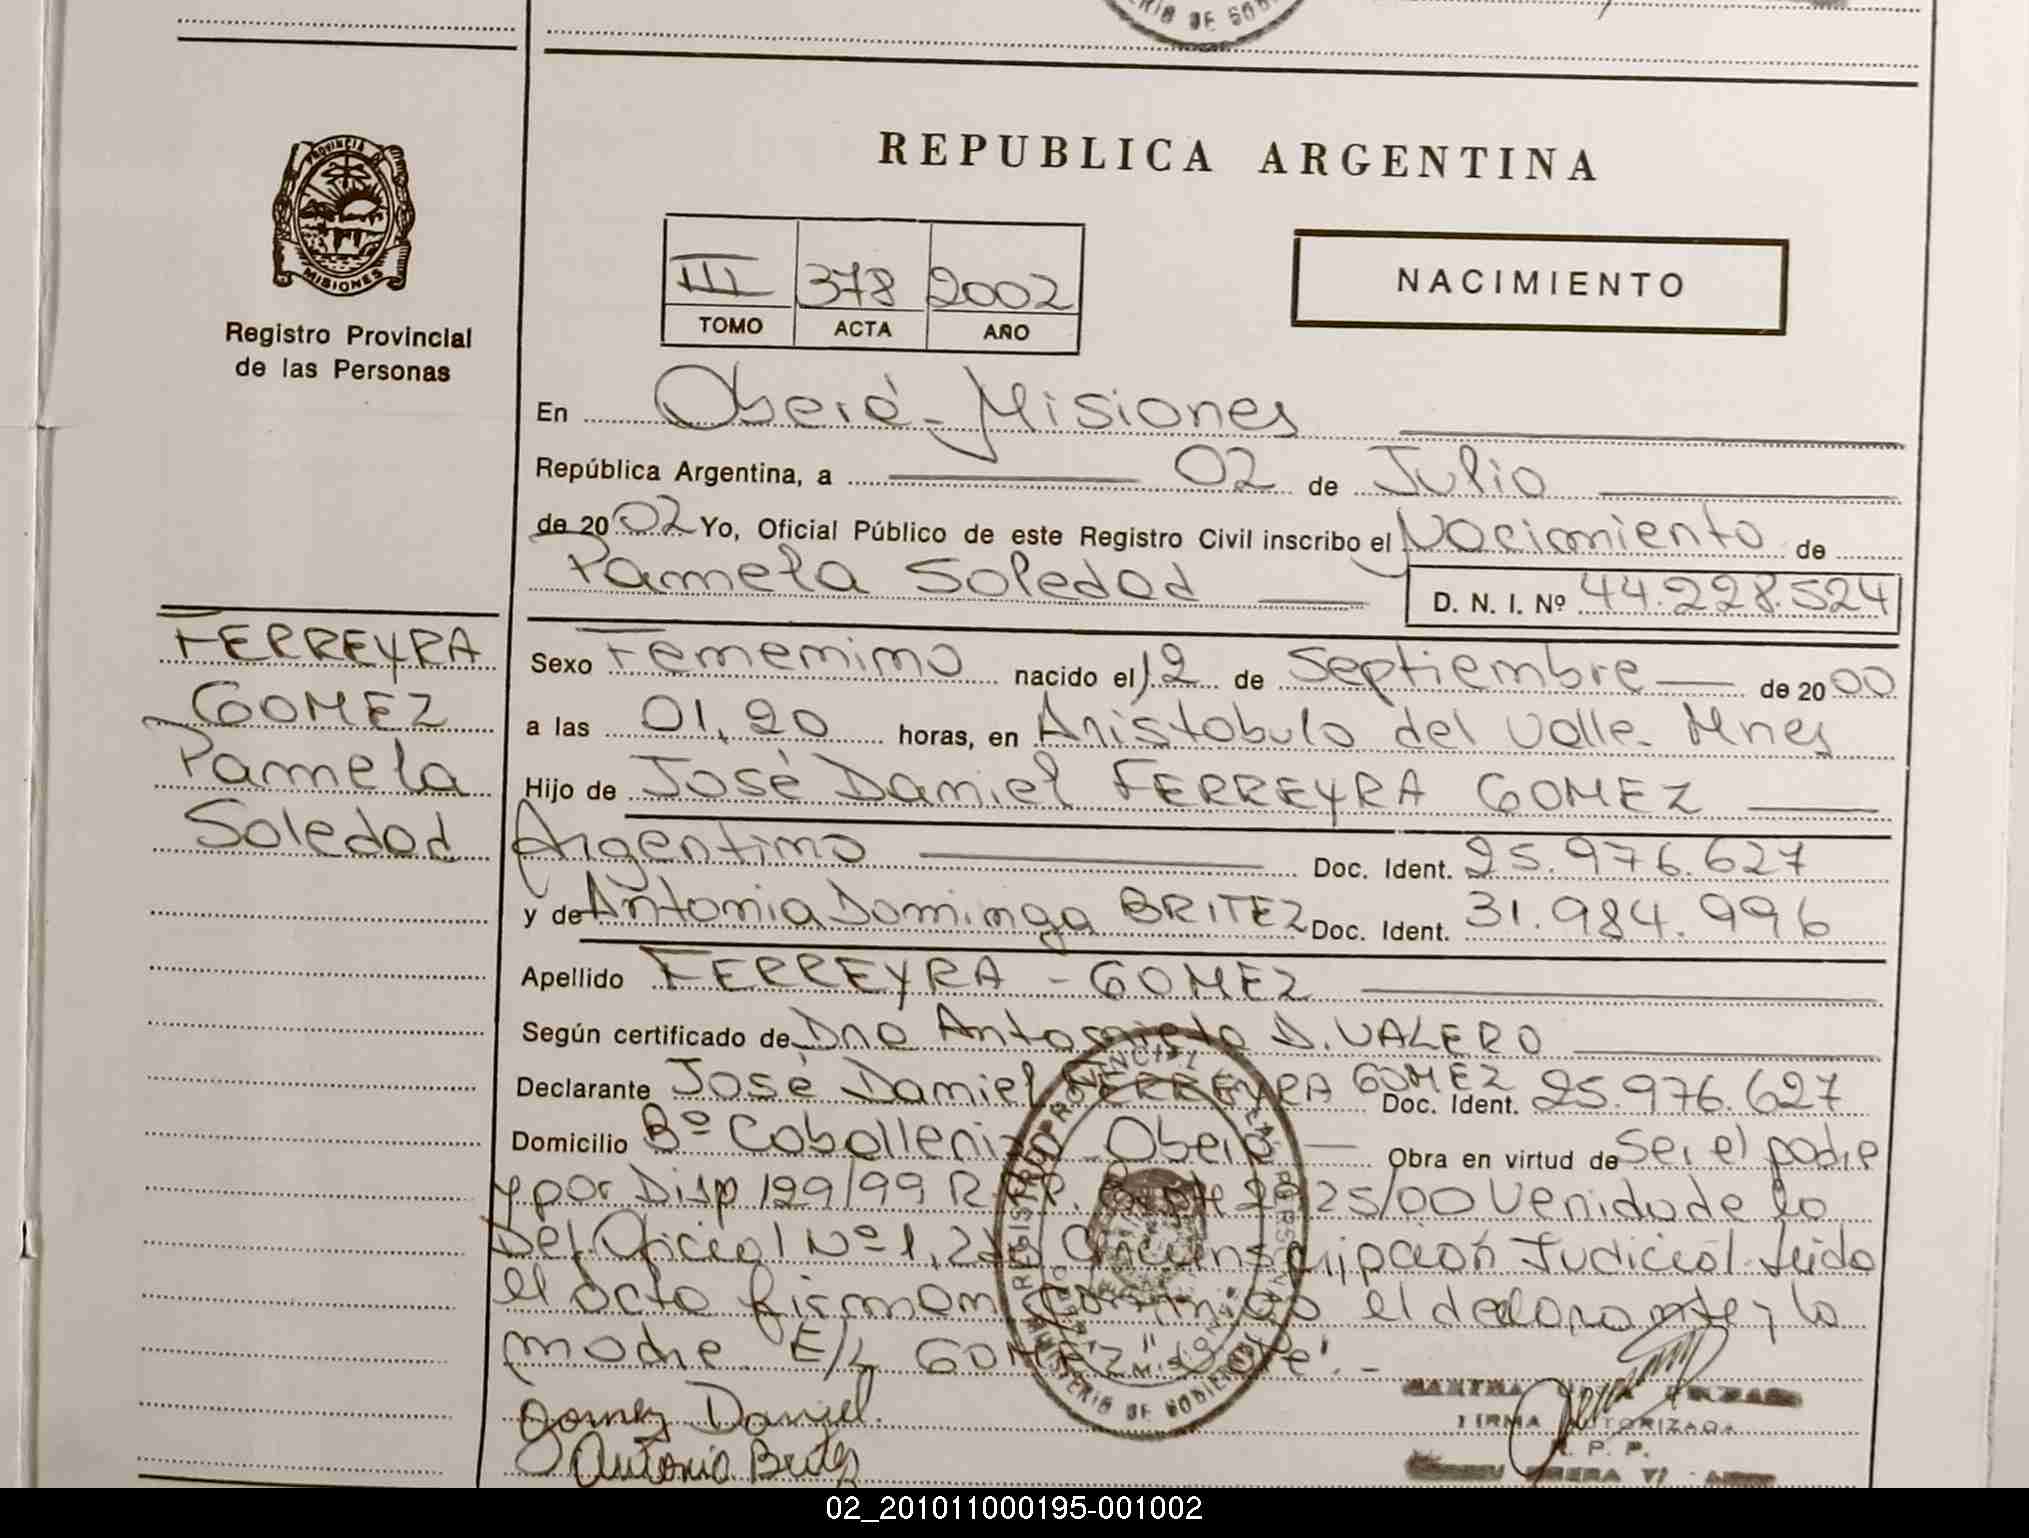 REPUBLICA ARGENTINA
PROVINCIA DE
MISIONES
Registro Provincial
de las Personas
III 378 2002
TOMO ACTA AÑO
NACIMIENTO
En Oberá - Misiones
República Argentina, a 02 de Julio
de 2002 Yo, Oficial Público de este Registro Civil inscribo el Nacimiento de
Pamela Soledad D. N. I. Nº 44.228.524
FERREYRA
GOMEZ
Pamela
Soledad
Sexo Femenino nacido el 12 de Septiembre de 2000
a las 01,20 horas, en Aristobulo del Valle - Mnes
Hijo de José Daniel FERREYRA GOMEZ
Argentino Doc. Ident. 25.976.627
y de Antonia Dominga BRITEZ Doc. Ident. 31.984.996
Apellido FERREYRA - GOMEZ
Según certificado de Dna D. VALERO
Declarante José Daniel FERREYRA GOMEZ Doc. Ident. 25.976.627
Domicilio Bº Caballeriza - Oberá Obra en virtud de Ser el padre
y por Disp 129/99 R. P. P. 25/00 Venida de la
Def. Oficial Nº 1, 2da Circunscripción Judicial. Leido
el acta firman conmigo el declarante y la
madre. E/L GOMEZ" Vale". -
Gomez Daniel
Antonia Britez
FIRMA AUTORIZADA
R. P. P.
MINISTERIO DE GOBIERNO
02_201011000195-001002